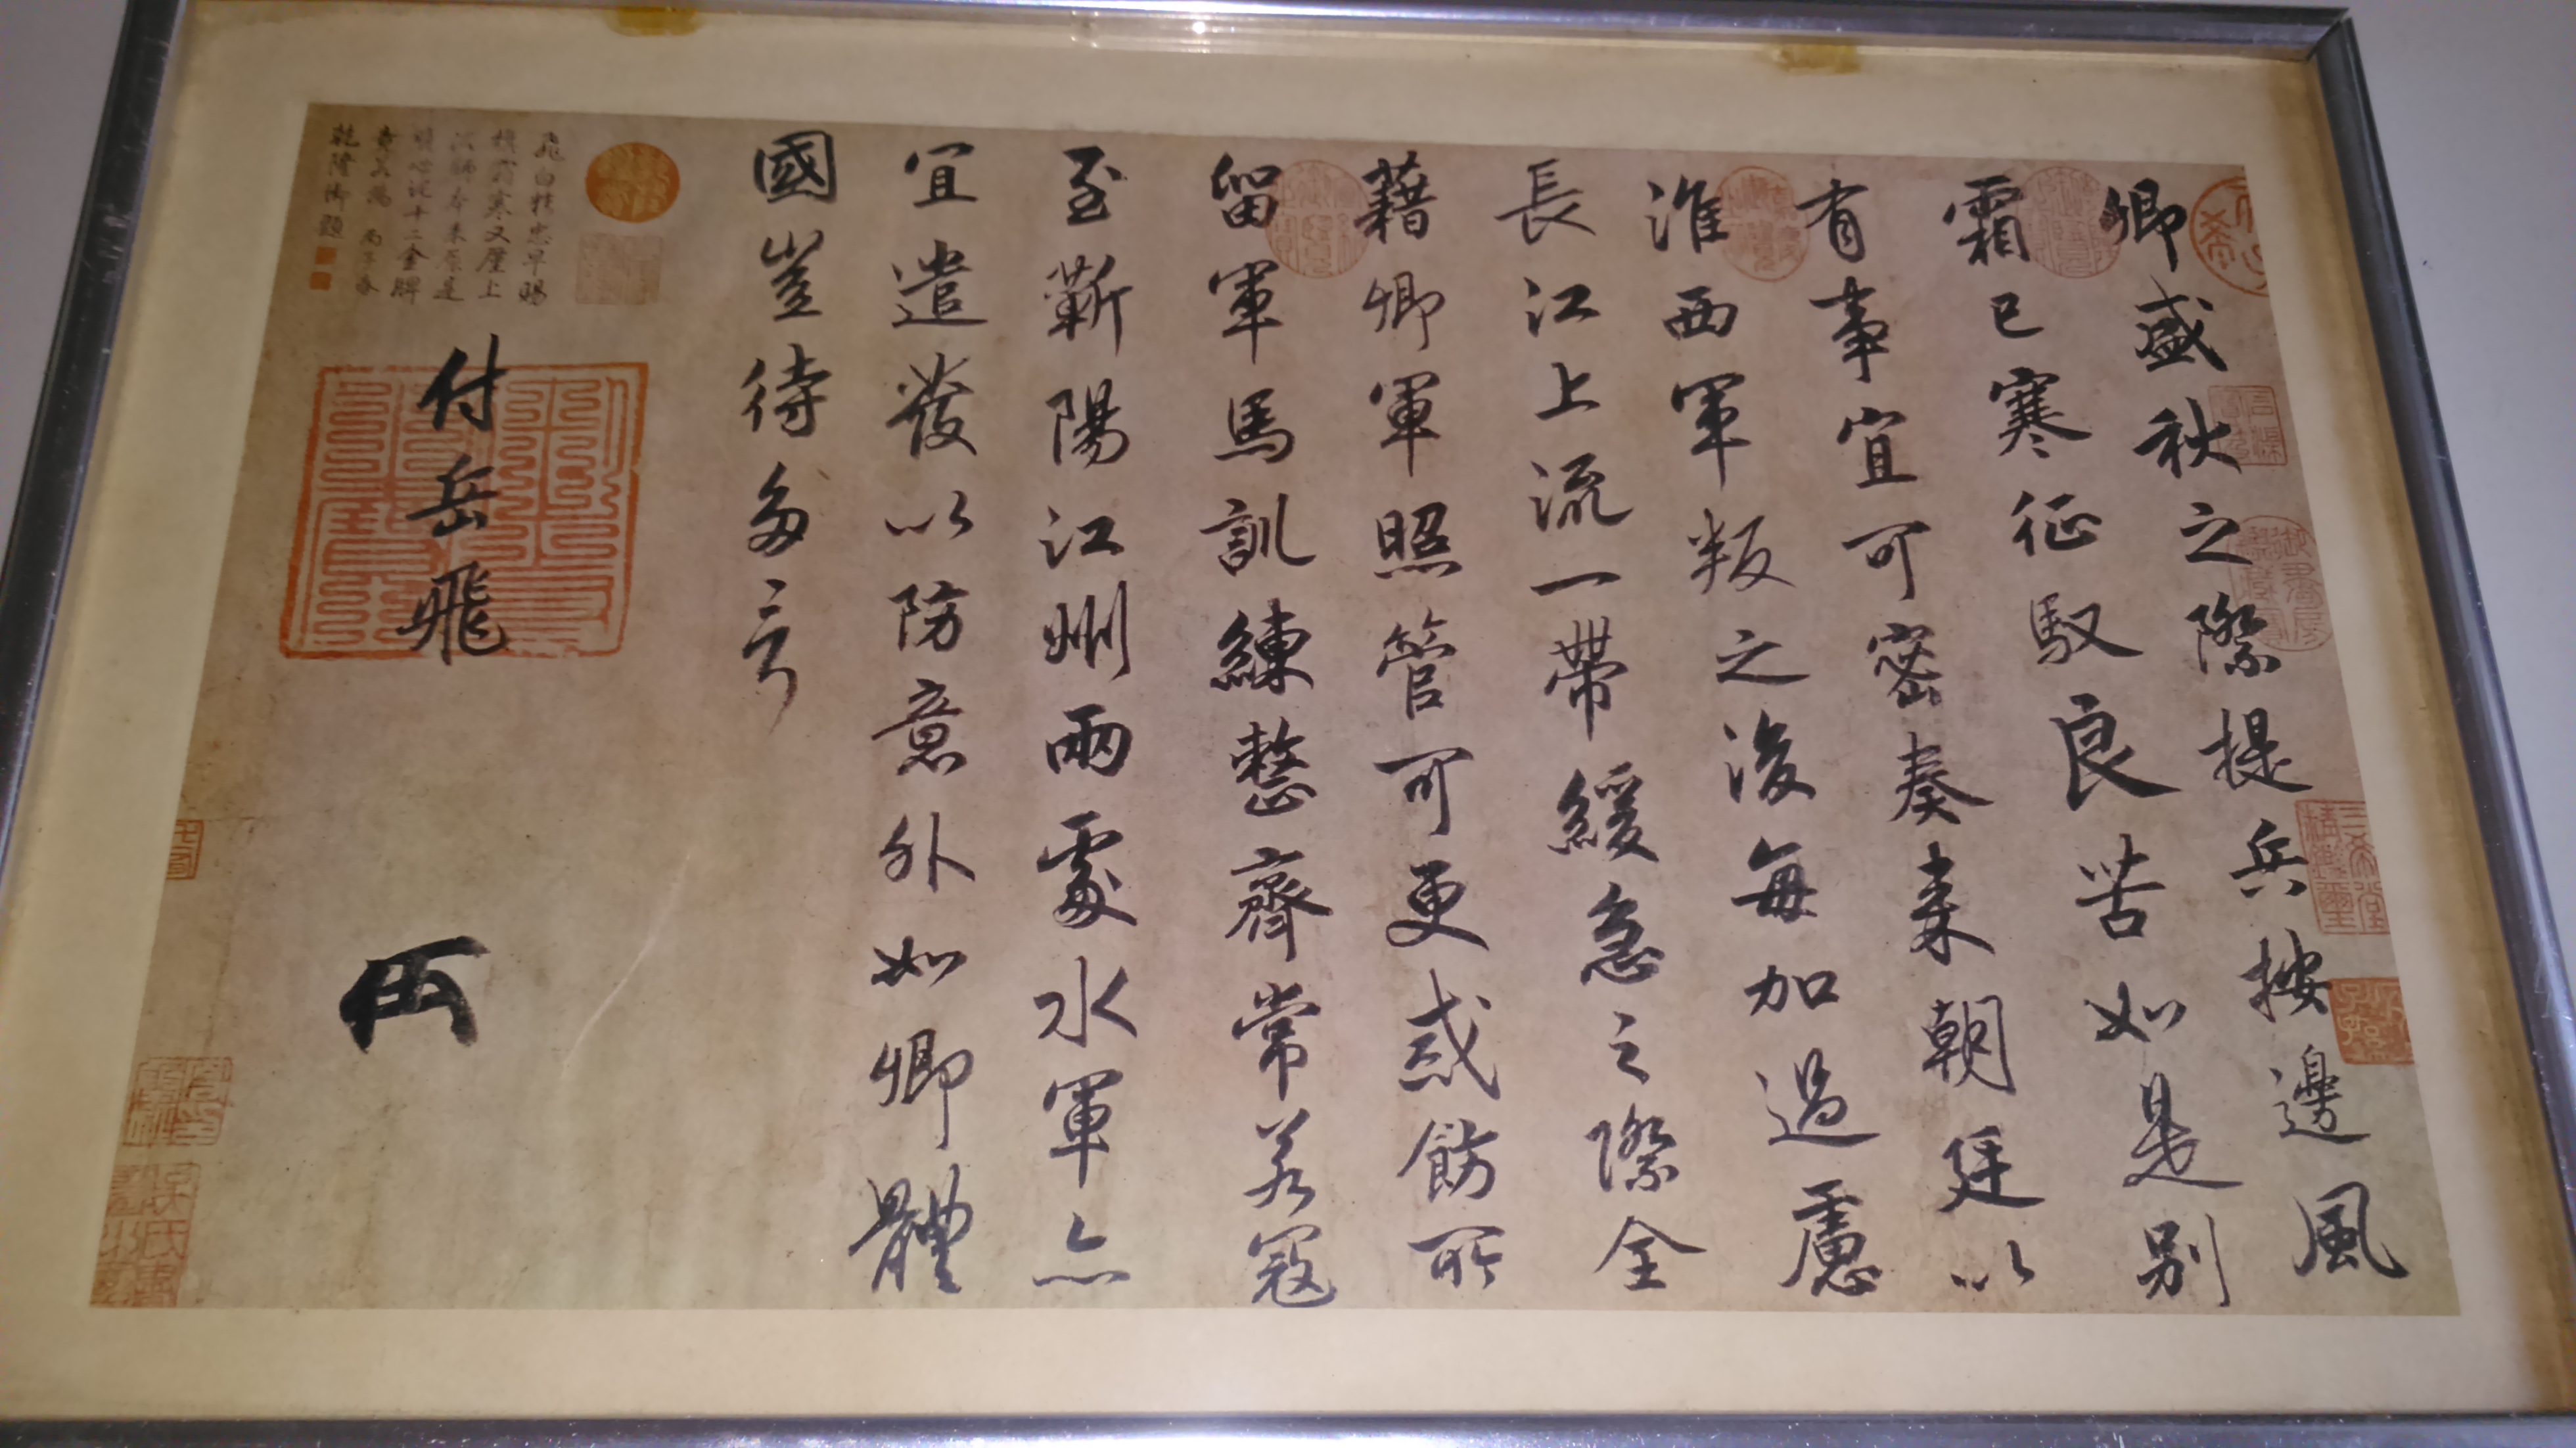 卿盛秋之際提兵按邊風
霜已寒征馭良苦如是別
有事宜可密奏來朝廷以
淮西軍叛之後每加過慮
長江上流一帶緩急之際全
藉卿軍照管可更戒飭所
留軍馬訓練整齊常若寇
至蘄陽江州兩處水軍亦
宜遣發以防意外如卿體
國豈待多言
付岳飛
乾隆御題